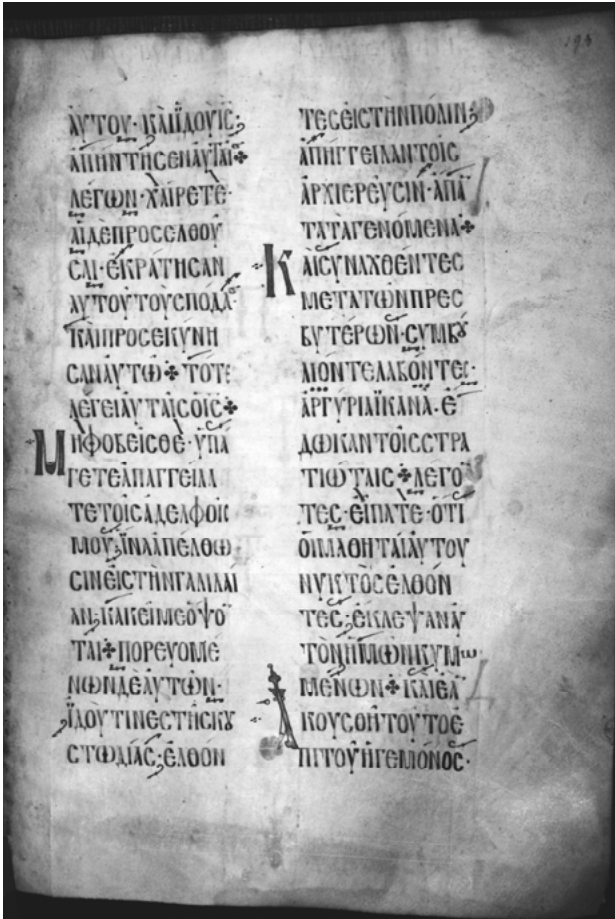 ΑΥΤΟΥ· ΚΑΙΪΔΟΥΙΣ
ΑΠΗΝΤΗΣΕΝΑΥΤΑΙ
ΛΕΓΩΝ· ΧΑΙΡΕΤΕ·
ΑΙΔΕΠΡΟΣΕΛΘΟΥ
ΣΑΙ· ΕΚΡΑΤΗΣΑΝ
ΑΥΤΟΥΤΟΥΣΠΟΔΑ
ΚΑΙΠΡΟΣΕΚΥΝΗ
ΣΑΝΑΥΤΩ✤ ΤΟΤΕ
ΛΕΓΕΙΑΥΤΑΙΣΟΙΣ✤
ΜΗΦΟΒΕΙΣΘΕ· ΥΠΑ
ΓΕΤΕΑΠΑΓΓΕΙΛΑ
ΤΕΤΟΙΣΑΔΕΛΦΟΙΣ
ΜΟΥ ΪΝΑΑΠΕΛΘΩ
ΣΙΝΕΙΣΤΗΝΓΑΛΙΛΑΙ
ΑΝ ΚΑΚΕΙΜΕΟΨΟ
ΤΑΙ✤ ΠΟΡΕΥΟΜΕ
ΝΩΝΔΕΑΥΤΩΝ·
ΪΔΟΥΤΙΝΕΣΤΗΣΚΟΥ
ΣΤΩΔΙΑΣ ΕΛΘΟΝ
ΤΕΣΕΙΣΤΗΝΠΟΛΙΝ
ΑΠΗΓΓΕΙΛΑΝΤΟΙΣ
ΑΡΧΙΕΡΕΥΣΙΝ· ΑΠΑ
ΤΑΤΑΓΕΝΟΜΕΝΑ✤
ΚΑΙΣΥΝΑΧΘΕΝΤΕΣ
ΜΕΤΑΤΩΝΠΡΕΣ
ΒΥΤΕΡΩΝ· ΣΥΜΒΟΥ
ΛΙΟΝΤΕΛΑΒΟΝΤΕΣ·
ΑΡΓΥΡΙΑΪΚΑΝΑ· Ε
ΔΩΚΑΝΤΟΙΣΣΤΡΑ
ΤΙΩΤΑΙΣ✤ ΛΕΓΟ
ΤΕΣ· ΕΙΠΑΤΕ· ΟΤΙ
ΟΙΜΑΘΗΤΑΙΑΥΤΟΥ
ΝΥΚΤΟΣΕΛΘΟΝ
ΤΕΣ ΕΚΛΕΨΑΝΑΥ
ΤΟΝΗΜΩΝΚΥΜΩ
ΜΕΝΩΝ✤ ΚΑΙΕΑ
ΑΚΟΥΣΘΗΤΟΥΤΟΕ
ΠΙΤΟΥΗΓΕΜΟΝΟΣ·